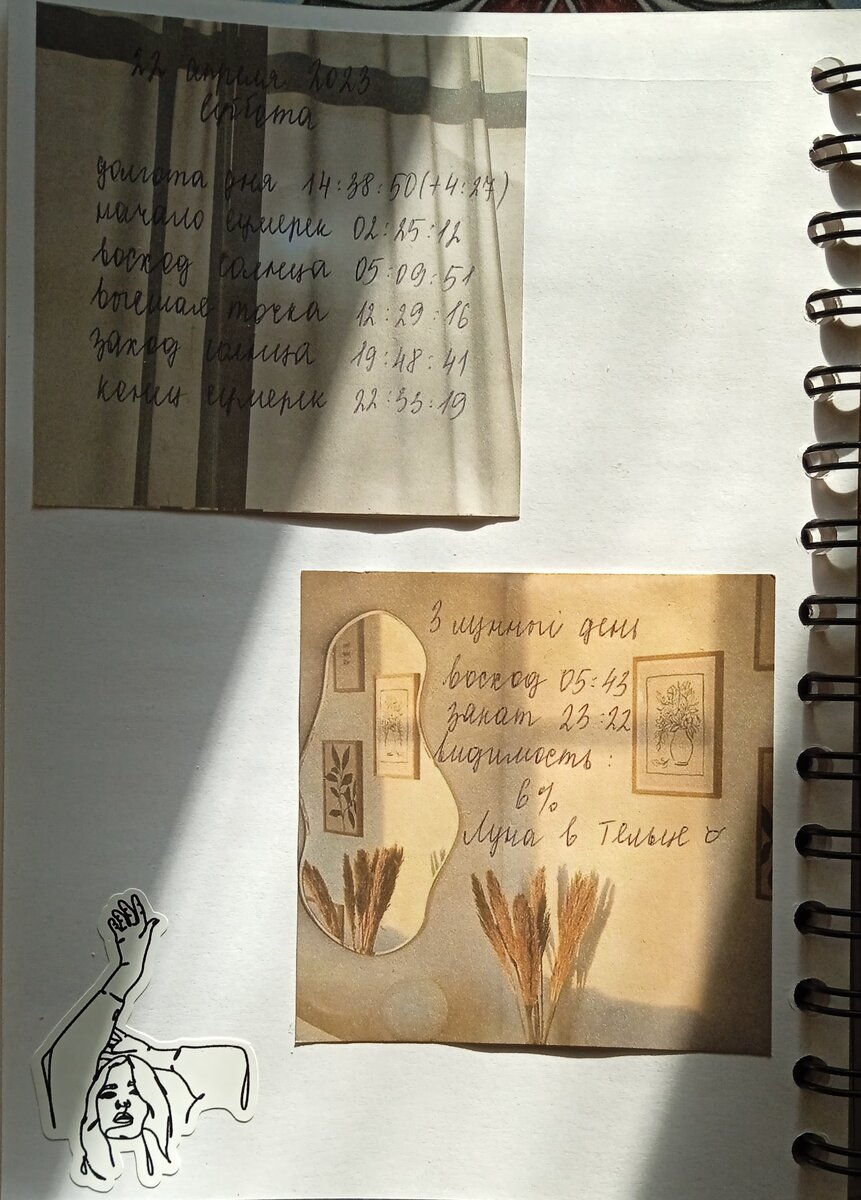 22 апреля 2023
суббота
долгота дня 14:38:50(+4:27)
начало сумерек 02:25:12
восход солнца 05:09:51
высшая точка 12:29:16
заход солнца 19:48:41
конец сумерек 22:33:19
3 лунный день
восход 05:43
закат 23:22
видимость:
6%
Луна в Тельце ♉